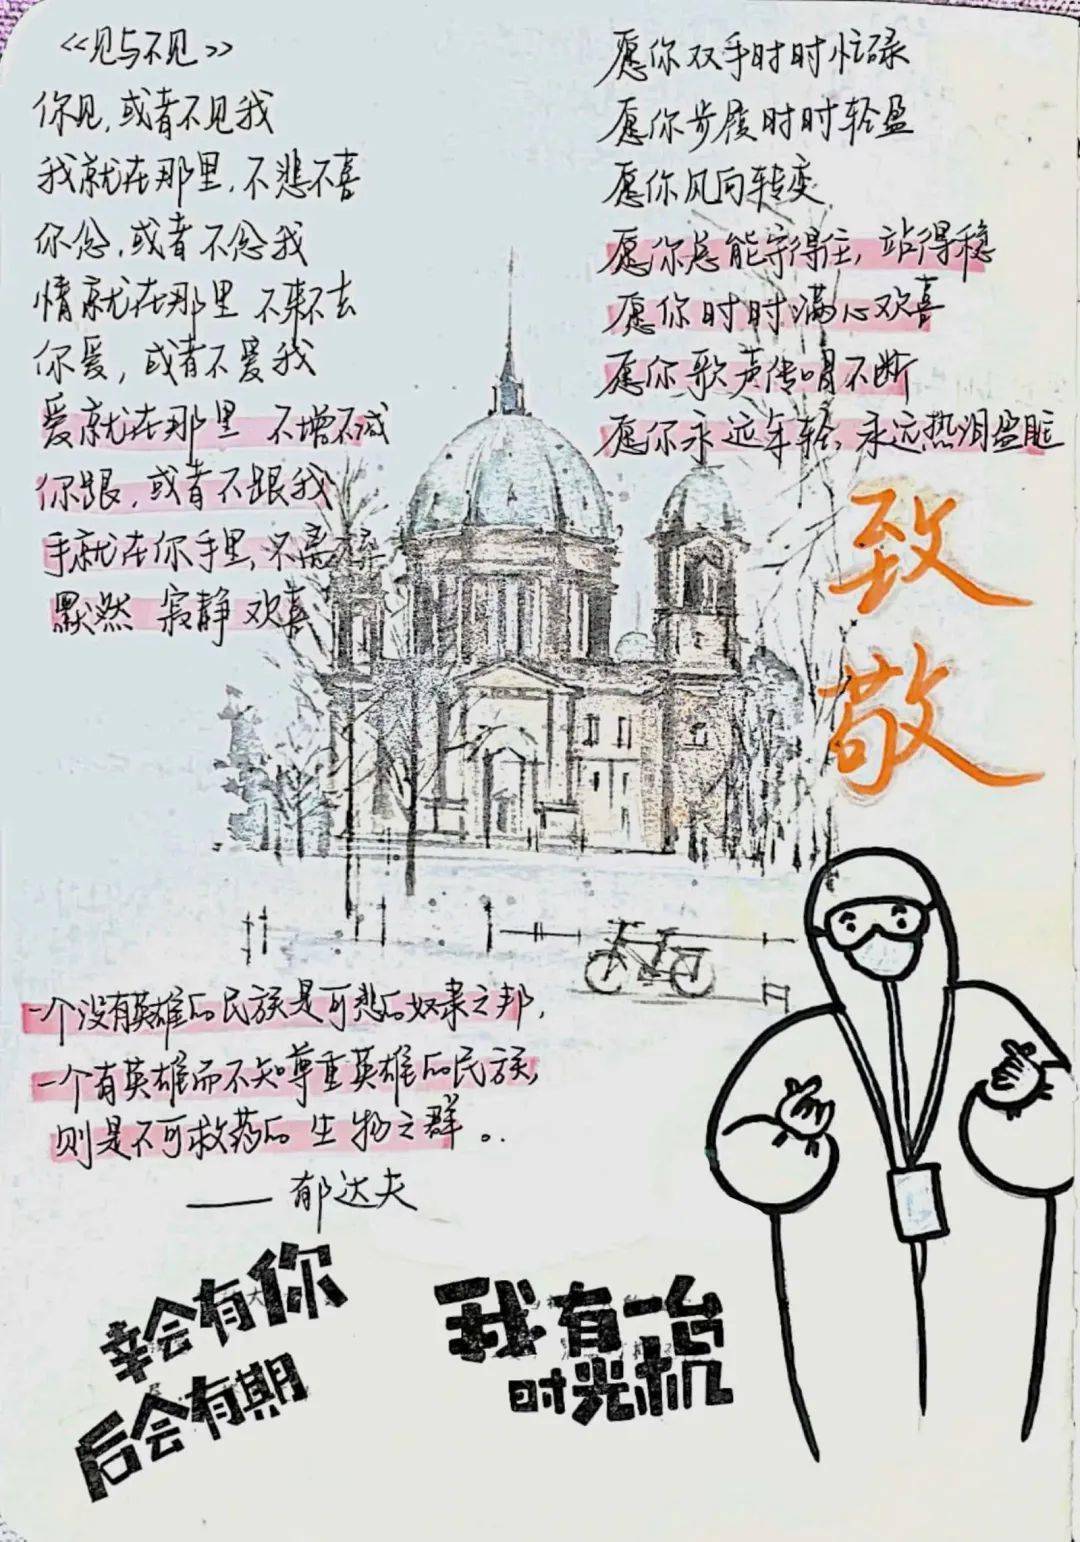 《见与不见》
你见,或者不见我
我就在那里,不悲不喜
你念,或者不念我
情就在那里 不来不去
你爱,或者不爱我
爱就在那里 不增不减
你跟,或者不跟我
手就在你手里,不离
默然 寂静 欢喜
愿你双手时时忙碌
愿你步履时时轻盈
愿你风向转变,
愿你总能守得住,站得稳
愿你时时满心欢喜
愿你歌声传唱不断
愿你永远年轻,永远热泪盈眶
致
敬
一个没有英雄的民族是可悲的奴隶之邦,
一个有英雄而不知尊重英雄的民族,
则是不可救药的生物之群。
——郁达夫
幸会有你
后会有期
我有一台
时光机